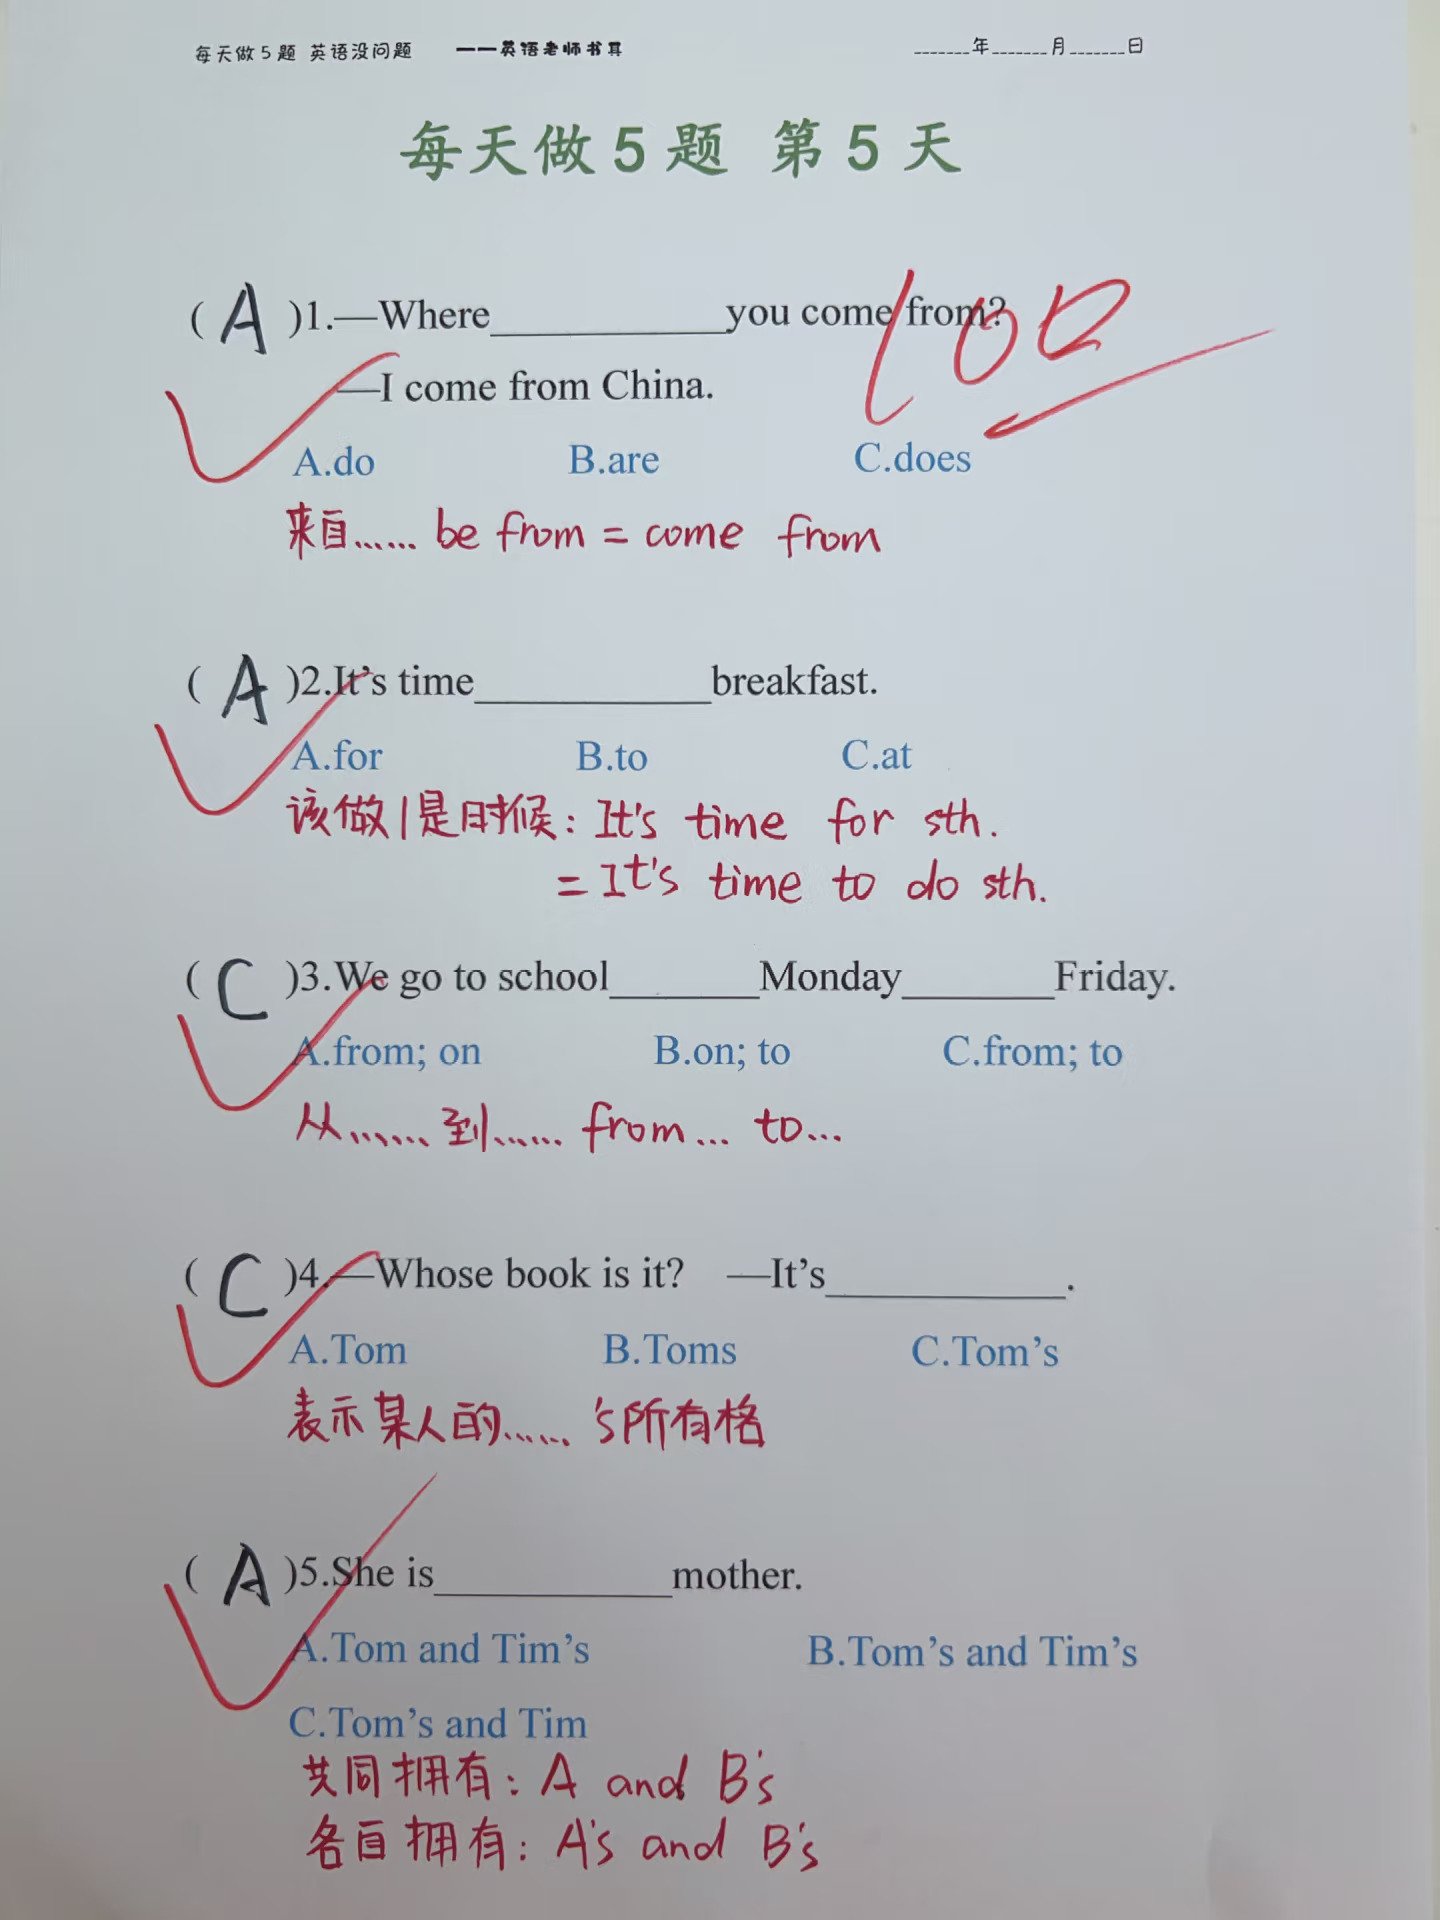 每天做5题 英语没问题 ——英语老师书其 ______年______月______日
每天做5题 第5天
( A )1.—Where__________you come from?
100
—I come from China.
A.do B.are C.does
来自…… be from = come from
( A )2.It’s time__________breakfast.
A.for B.to C.at
该做|是时候：It's time for sth.
= It's time to do sth.
( C )3.We go to school______Monday______Friday.
A.from; on B.on; to C.from; to
从……到…… from... to...
( C )4.—Whose book is it? —It’s__________.
A.Tom B.Toms C.Tom’s
表示某人的…… 's所有格
( A )5.She is__________mother.
A.Tom and Tim’s B.Tom’s and Tim’s
C.Tom’s and Tim
共同拥有：A and B's
各自拥有：A's and B's